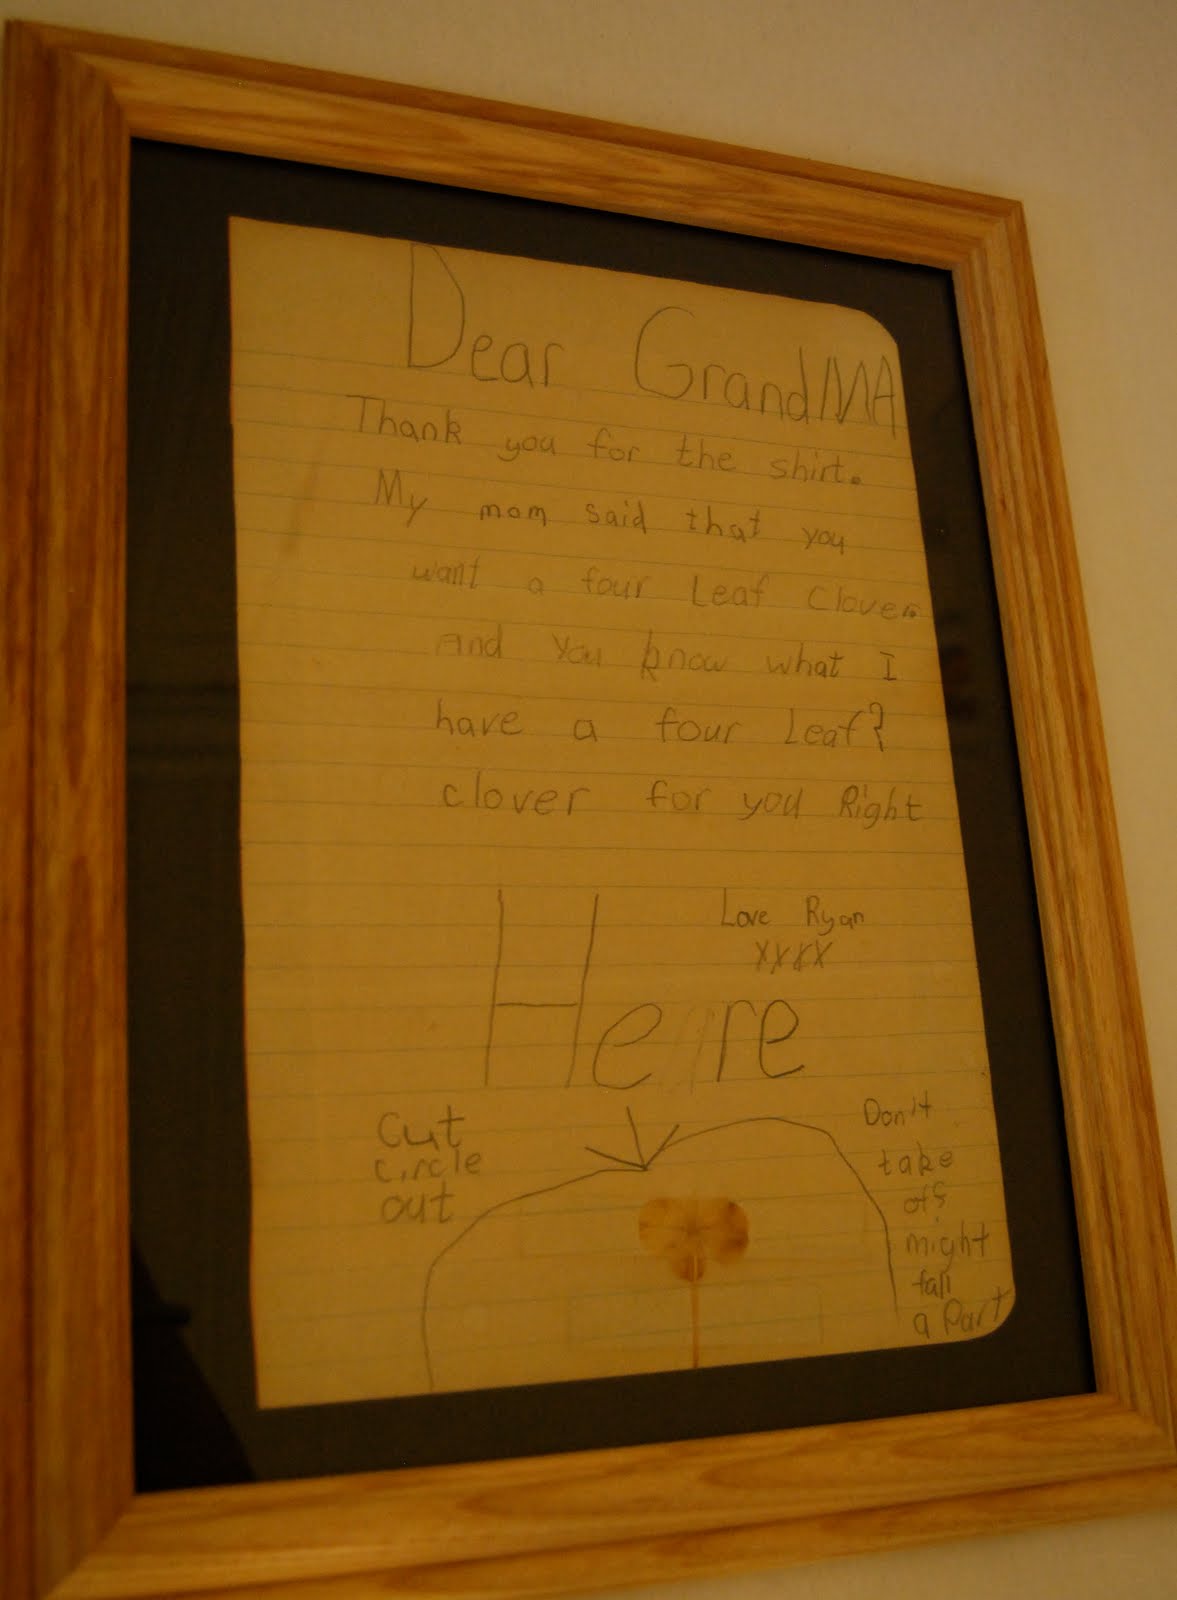 Dear GrandMA
Thank you for the shirt.
My mom said that you
want a four Leaf Clover.
And you know what I
have a four Leaf?
clover for you Right
Here
Love Ryan
xxxx
Cut
circle
out
Don't
take
off
might
fall
a Part